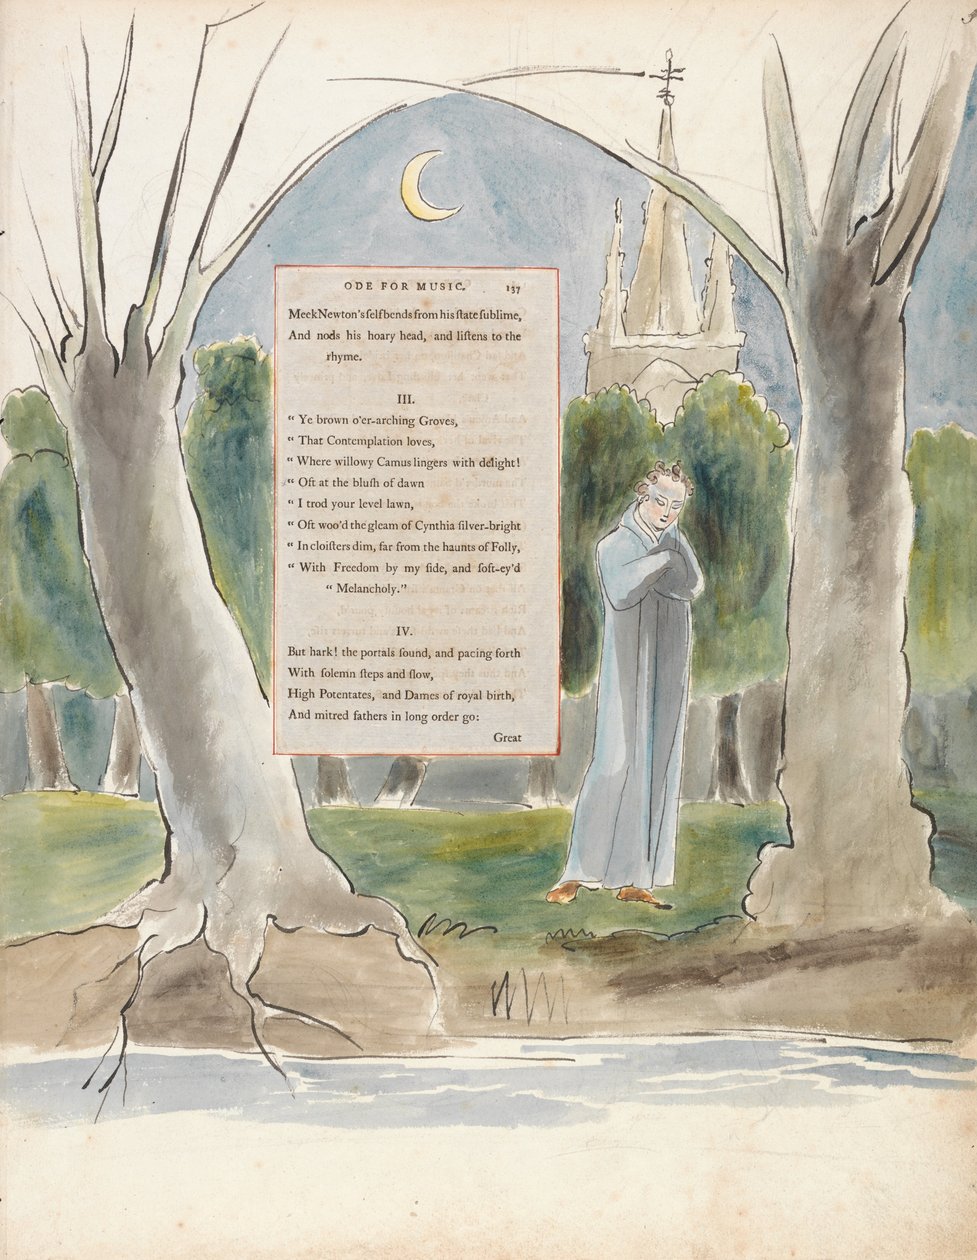 ODE FOR MUSIC. 137
Meek Newton's self bends from his ſtate ſublime,
And nods his hoary head, and liſtens to the
rhyme.
III.
“ Ye brown o'er-arching Groves,
“ That Contemplation loves,
“ Where willowy Camus lingers with delight!
“ Oft at the bluſh of dawn
“ I trod your level lawn,
“ Oft woo'd the gleam of Cynthia ſilver-bright
“ In cloiſters dim, far from the haunts of Folly,
“ With Freedom by my ſide, and ſoft-ey'd
“ Melancholy.”
IV.
But hark! the portals ſound, and pacing forth
With ſolemn ſteps and ſlow,
High Potentates, and Dames of royal birth,
And mitred fathers in long order go:
Great